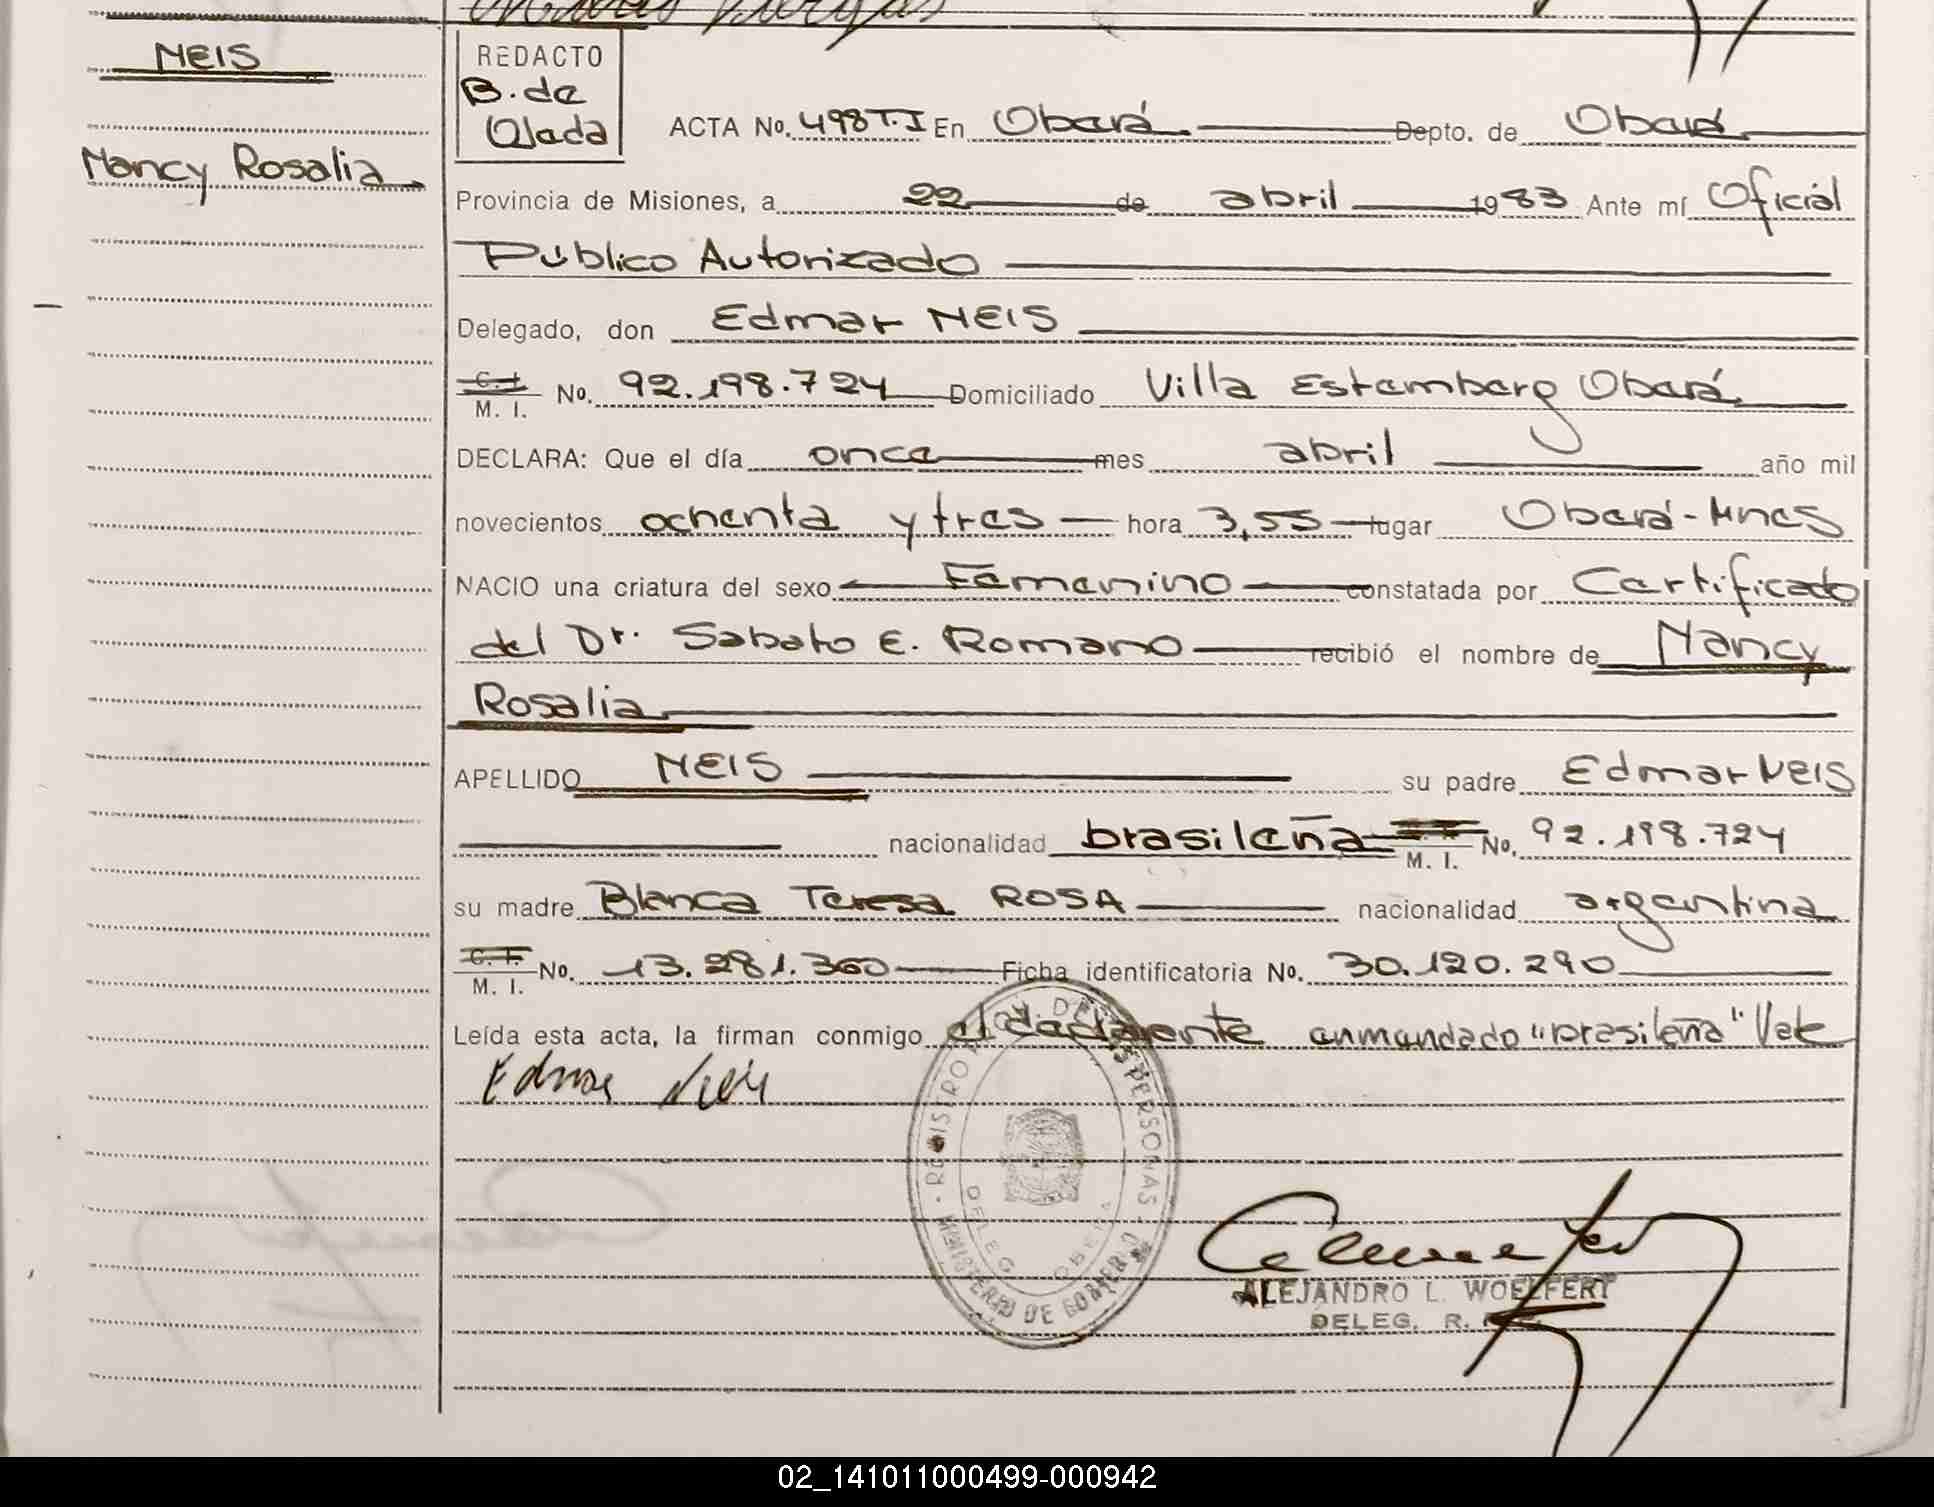 NEIS
Nancy Rosalia
REDACTO
B. de
Olada
ACTA No. 498 T.I En Oberá Depto. de Oberá
Provincia de Misiones, a 22 de abril 1983 Ante mí Oficial
Público Autorizado
Delegado, don Edmar NEIS
C. I.
M. I. No. 92.198.724 Domiciliado Villa Estemberg Oberá
DECLARA: Que el día once mes abril año mil
novecientos ochenta y tres hora 3,55 lugar Oberá-Mnes
NACIO una criatura del sexo Femenino constatada por Certificado
del Dr. Sabato E. Romano recibió el nombre de Nancy
Rosalia
APELLIDO NEIS su padre Edmar NEIS
nacionalidad brasileña M. I. No. 92.198.724
su madre Blanca Teresa ROSA nacionalidad argentina
C. I.
M. I. No. 13.281.360 Ficha identificatoria No. 30.120.290
Leída esta acta, la firman conmigo el declarente enmendado "brasileña" Vale
Edmar Neis
REGISTRO PERSONAS
MINISTERIO DE GOBIERNO
DELEG. OBERA
ALEJANDRO L. WOELFERT
DELEG. R.
02_141011000499-000942